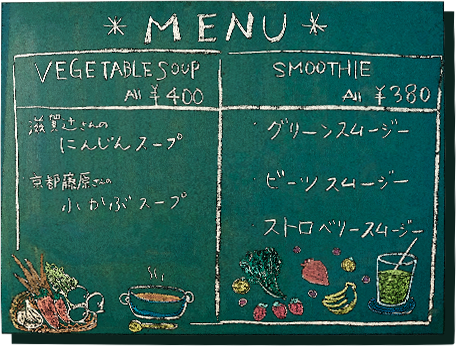 * MENU *
VEGETABLE SOUP
All ¥400
滋賀辻さんの
にんじんスープ
京都藤原さんの
小かぶスープ
SMOOTHIE
All ¥380
・グリーンスムージー
・ビーツスムージー
・ストロベリースムージー